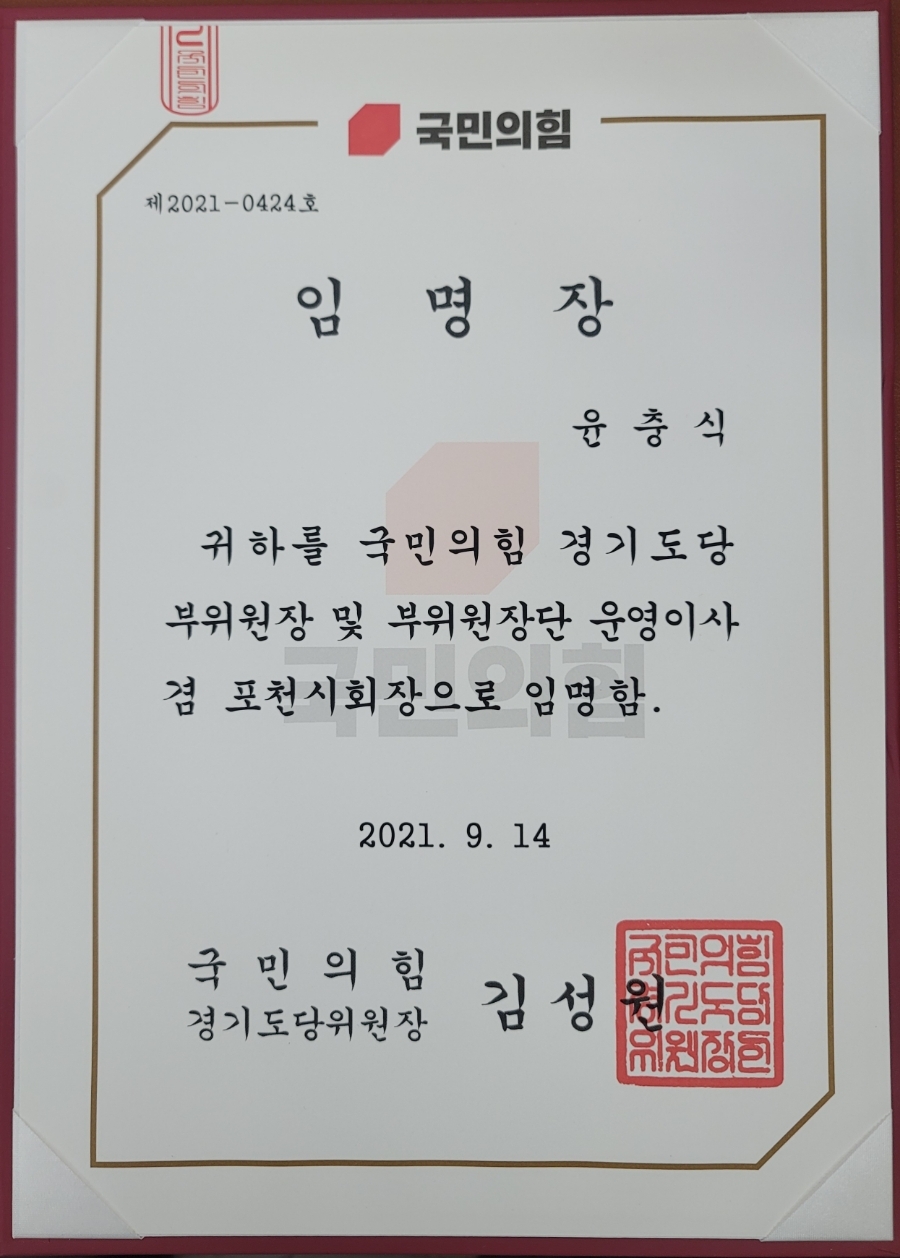 국민의힘
제2021-0424호
임 명 장
윤 충 식
귀하를 국민의힘 경기도당
부위원장 및 부위원장단 운영이사
겸 포천시회장으로 임명함.
국민의힘
2021. 9. 14
국 민 의 힘
경기도당위원장
김 성 원
국민의힘
경기도당
위원장인